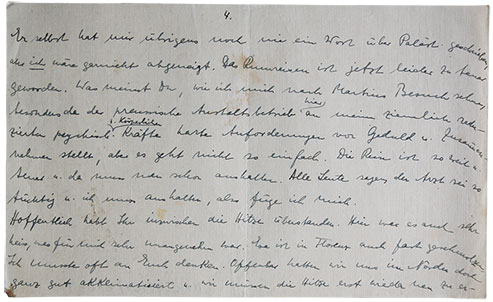 4.
Er selbst hat mir übrigens noch nie ein Wort über Paläst. geschrieben,
aber ich wäre garnicht abgeneigt. Das Rumreisen ist jetzt leider zu teuer
geworden. Was meinst Du, wie ich mich nach Martins Besuch sehne,
besonders da der preussische Anstaltsbetrieb hier an meine ziemlich redu-
zierten psychisch. u. körperlichen Kräfte harte Anforderungen von Geduld u. Zusammen-
nehmen stellt, aber es geht nicht so einfach. Die Reise ist so weit u.
teuer u. da muss man schon aushalten. Alle Leute sagen der Arzt sei so
tüchtig u. ich muss aushalten, also füge ich mich.
Hoffentlich habt Ihr inzwischen die Hitze überstanden. Hier war es auch sehr
heiss, was für mich sehr unangenehm war. Eva ist in Florenz auch fast geschmolzen.
Ich musste oft an Euch denken. Offenbar hatten wir uns im Norden doch
ganz gut akklimatisiert u. wir müssen die Hitze erst wieder neu zu er-